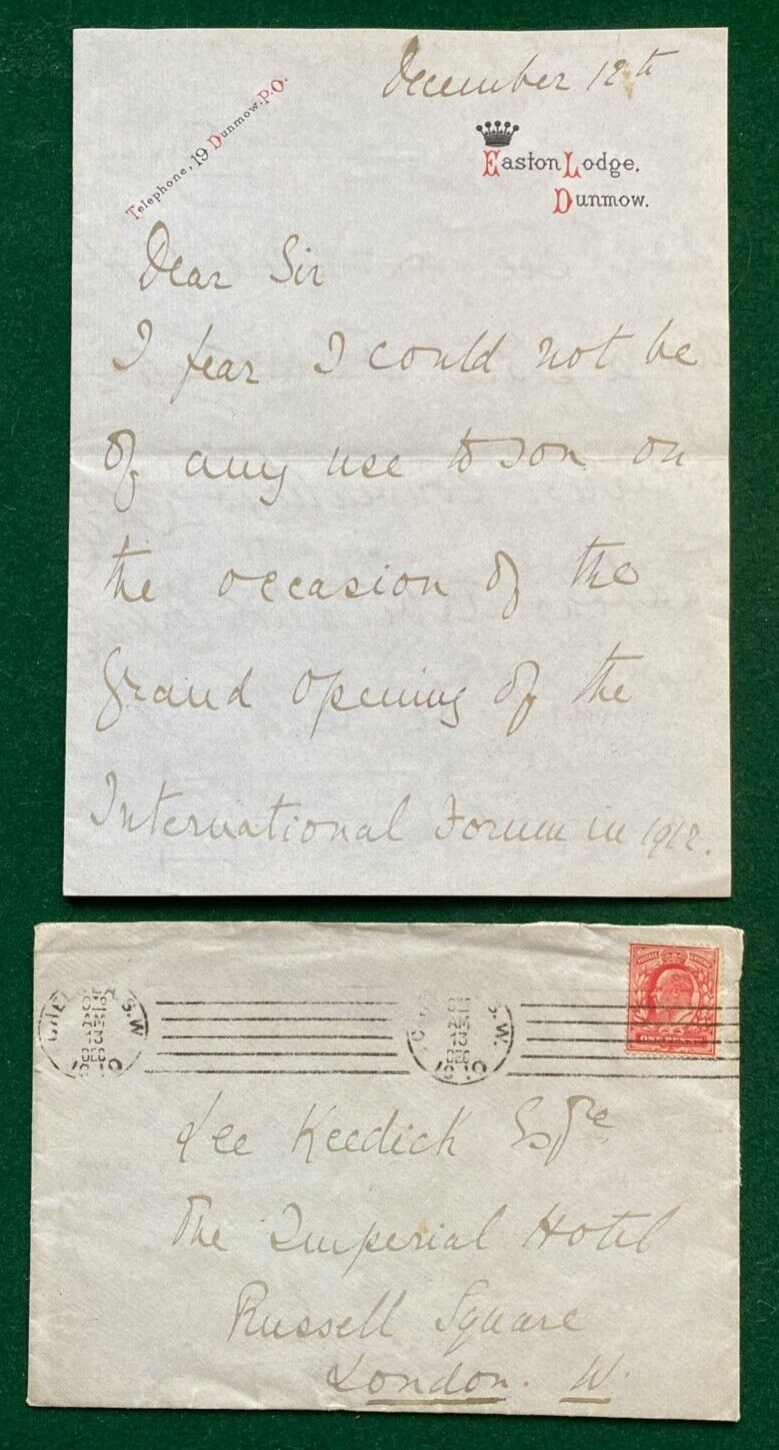 December 12th
Telephone, 19 Dunmow. P.O.
Easton Lodge,
Dunmow.
Dear Sir
I fear I could not be
of any use to you on
the occasion of the
Grand Opening of the
International Forum in 1912.
S.W.
S.W.
ONE PENNY
Lee Keedick Esqre
The Imperial Hotel
Russell Square
London. W.